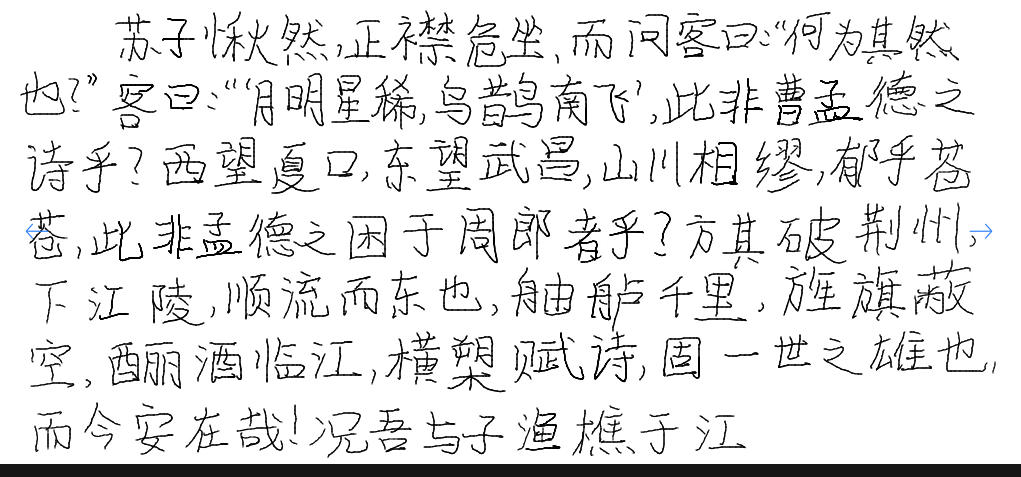 苏子愀然,正襟危坐,而问客曰:“何为其然
也?”客曰:“‘月明星稀,乌鹊南飞’,此非曹孟德之
诗乎?西望夏口,东望武昌,山川相缪,郁乎苍
苍,此非孟德之困于周郎者乎?方其破荆州,
下江陵,顺流而东也,舳舻千里,旌旗蔽
空,酾酒临江,横槊赋诗,固一世之雄也,
而今安在哉!况吾与子渔樵于江